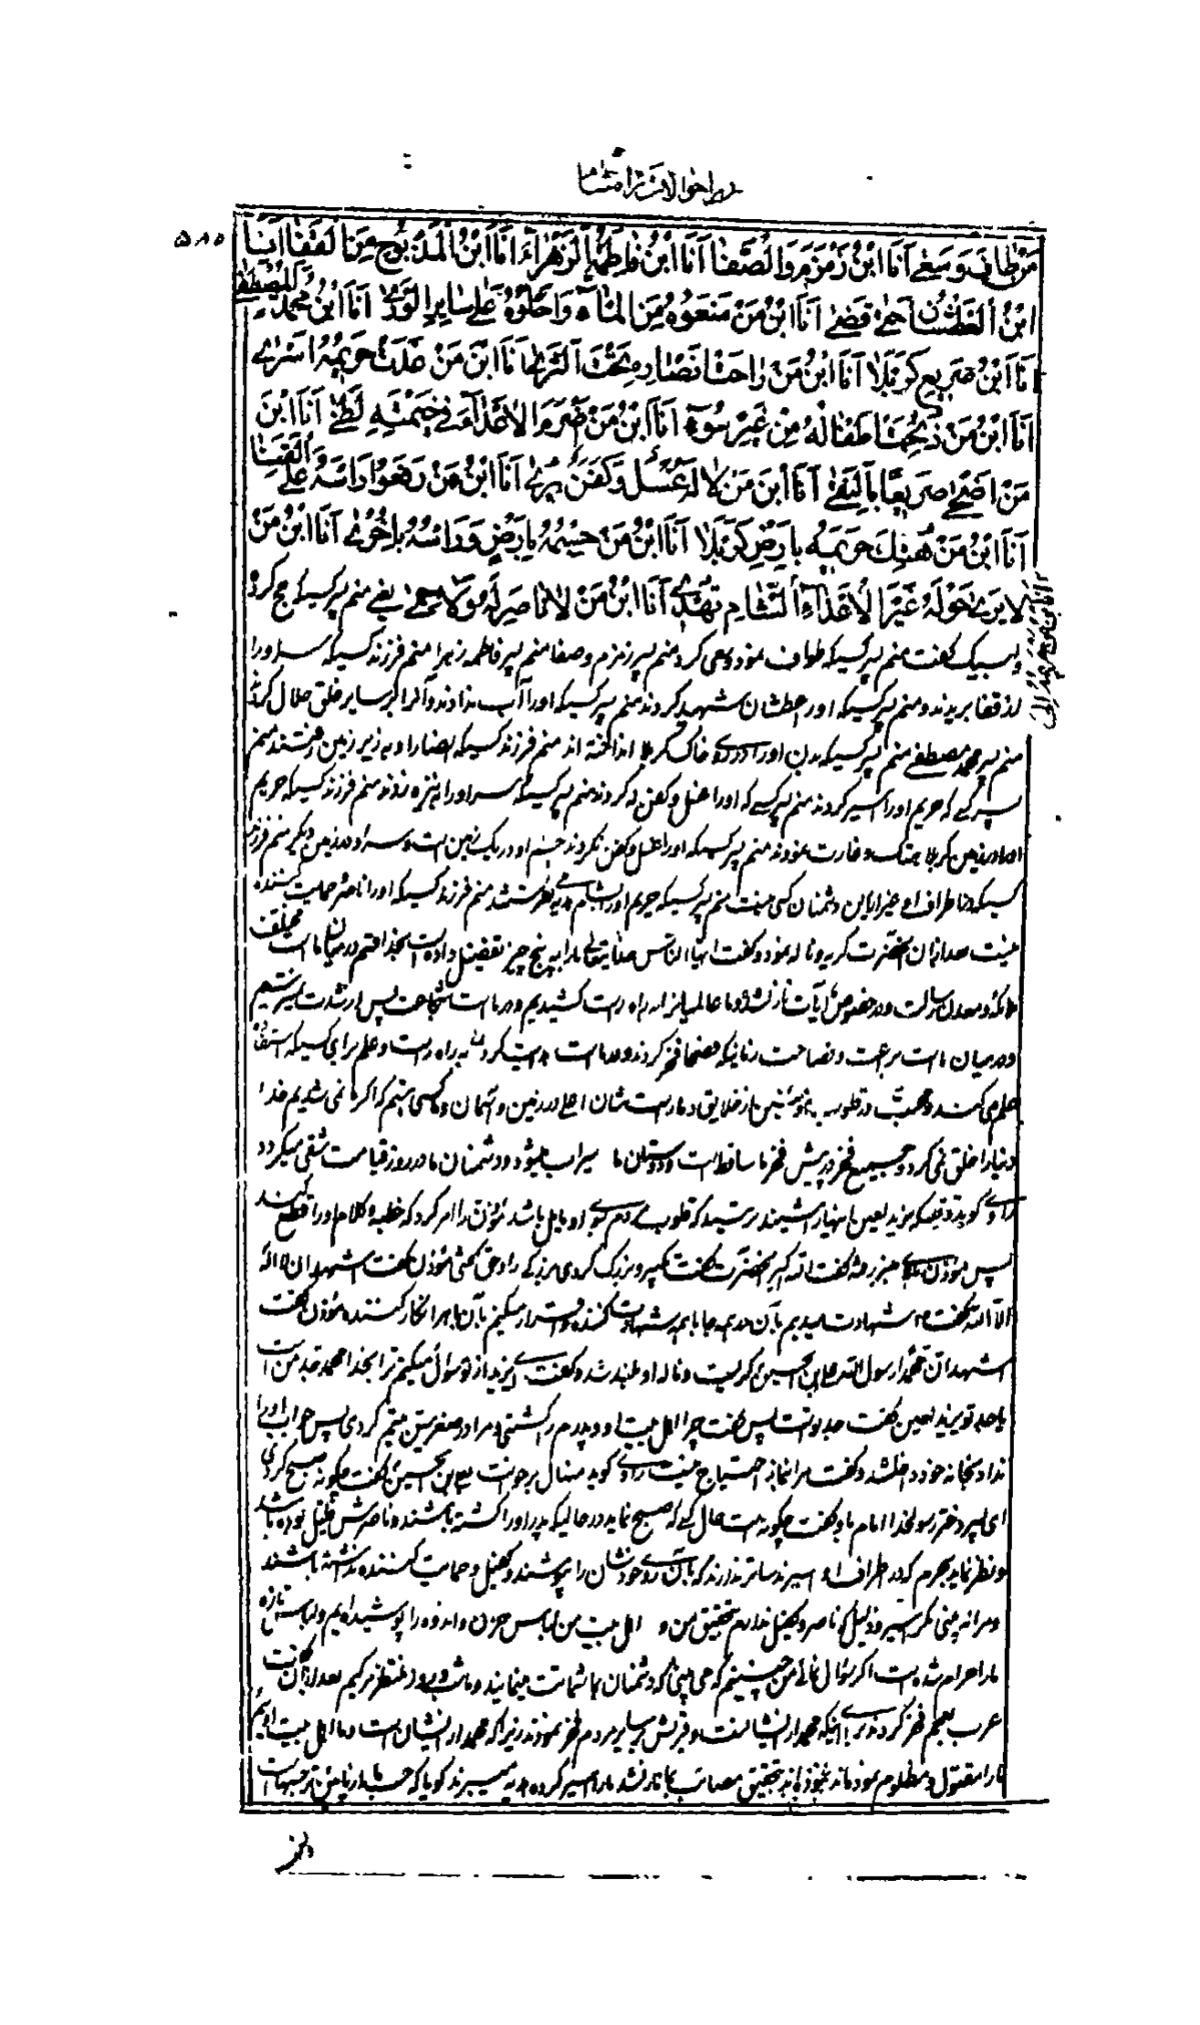 در احوالات شام
۵۸۵
مَنْ طافَ وَسَعیٰ اَنَا ابْنُ زَمْزَمَ وَالصَّفٰا اَنَا ابْنُ فٰاطِمَةَ الزَّهْراءِ اَنَا ابْنُ الْمَذْبُوحِ مِنَ الْقَفٰا اَنَا
ابْنُ الْعَطْشٰانِ حَتّیٰ قَضیٰ اَنَا ابْنُ مَنْ مَنَعُوهُ مِنَ الْمٰاءِ وَاَحَلُّوهُ عَلیٰ سٰایِرِ الْوَریٰ اَنَا ابْنُ مُحَمَّدٍ الْمُصْطَفیٰ
اَنَا ابْنُ صَریعِ کَرْبَلٰا اَنَا ابْنُ مَنْ رٰاحَتْ اَنْصٰارُهُ تَحْتَ الثَّریٰ اَنَا ابْنُ مَنْ غَدَتْ حَریمُهُ اَسْریٰ
اَنَا ابْنُ مَنْ ذُبِحَتْ اَطْفٰالُهُ مِنْ غَیْرِ سُوءٍ اَنَا ابْنُ مَنْ اَضْرَمَ الْاَعْدٰاءُ فی خَیْمَتِهِ لَظیٰ اَنَا ابْنُ
مَنْ اَضْحیٰ صَریعًا بِالنَّقیٰ اَنَا ابْنُ مَنْ لٰا لَهُ غُسْلٌ وَکَفَنٌ یُریٰ اَنَا ابْنُ مَنْ رَفَعُوا رَاْسَهُ عَلَی الْقَنٰا
اَنَا ابْنُ مَنْ هُتِکَ حَریمُهُ بِاَرْضِ کَرْبَلٰا اَنَا ابْنُ مَنْ جِسْمُهُ بِاَرْضٍ وَرَاْسُهُ بِاُخْریٰ اَنَا ابْنُ مَنْ
لٰا یَریٰ حَوْلَهُ غَیْرَ الْاَعْدٰاءِ الشّٰامِ تُهْدیٰ اَنَا ابْنُ مَنْ لٰا نٰاصِرَ لَهُ وَلٰا حِمیٰ یعنی منم پسر کسیکه حج کرد
و لبیک گفت منم پسر کسیکه طواف نمود و سعی کرد منم پسر زمزم و صفا منم پسر فاطمه زهرا منم فرزند کسیکه سر او را
از قفا بریدند و منم پسر کسیکه او را عطشان شهید کردند منم پسر کسیکه او را آب ندادند و آنرا بر سایر خلق حلال کردند
منم پسر محمد مصطفی منم پسر کسیکه بدن او را در خاک کربلا انداخته اند منم فرزند کسیکه انصار او به زیر زمین رفتند منم
پسر کسی که حریم او را اسیر کردند منم پسر کسی که او را غسل و کفن نکردند منم پسر کسیکه سر او را به نیزه زدند منم فرزند کسیکه حریم
او را در زمین کربلا هتک و غارت نمودند منم پسر کسیکه او را غسل و کفن نکردند جسم او در یک زمین است و سر او در زمین دیگر منم فرزند
کسیکه در اطراف او غیر از این دشمنان کسی نیست منم پسر کسیکه حریم او را بشام هدیه فرستند منم فرزند کسیکه او را ناصر و حمایت کننده
نیست بعد از آن آنحضرت گریه و ناله نمود و گفت ایها الناس خدایتعالی ما را به پنج چیز تفضیل داده است بخدا قسم در میان ما است مختلف
ملائکه و معدن رسالت و در خصوص ما آیات نازل شد و ما عالمیانرا به راه راست کشیدیم و در ما است شجاعت پس از شدت نمیترسیم
و در میان ما است براعت و فصاحت زمانیکه فصحا فخر کردند و در ما است هدایت کردن به راه راست و علم برای کسیکه استفاده
علم می کند و محبت در قلوب مؤمنین از خلایق و ما راست شان اعلا در زمین و آسمان و ما کسی هستیم که اگر ما نمی شدیم خدا
دنیا را خلق نمی کرد و جمیع فخر در پیش فخر ما ساقط است و دوستان ما سیراب میشود و دشمنان ما در روز قیامت شقی میگردد
راوی گوید وقتیکه یزید لعین اینها را شنید ترسید که قلوب مردم بسوی او مایل باشد مؤذن را امر کرد که خطبه و کلام او را قطع کند
پس مؤذن بالای منبر رفته گفت الله اکبر آنحضرت گفت تکبیر و بزرگ کردی بزرگی را و حق گفتی مؤذن گفت اشهد ان لا اله
الا الله گفت شهادت میدیم بآن در همه جا با هر شهادت کننده و اقرار میکنیم بآن با هر انکار کننده مؤذن گفت
اشهد ان محمدا رسول الله علی ابن الحسین گریست و ناله او بلند شد و گفت ای یزید از تو سؤال میکنم ترا بخدا محمد جد من است
یا جد تو یزید لعین گفت جد تو است پس گفت چرا اهل بیت او و پدرم را کشتی و مرا در صغر سن یتیم کردی پس جواب او را
نداد و بخانه خود داخل شد و گفت مرا بنماز احتیاج نیست راوی گوید منهال برخواست بعلی بن الحسین گفت چگونه صبح کردی
ای پسر دختر رسولخدا امام باو گفت چگونه است حال کسی که صبح نماید در حالیکه پدر او را کشته باشند و ناصرش قلیل بوده باشد
و نظر نماید بحرم که در اطراف او اسیرند ساتر ندارند که بآن روی خودشان را بپوشند و کفیل و حمایت کننده نداشته باشند
و مرا نمی بینی مگر اسیر و ذلیل که ناصر و کفیل ندارم تحقیق من و اهل بیت من لباس حزن و اندوه را پوشیده ایم و لباس تازه
ما را حرام شده است اگر سؤال نمائی من چنینم که می بینی که دشمنان بما شماتت مینمایند و ما شب و روز منتظر مرگیم بعد از آن گفت
عرب بعجم فخر کردند برای اینکه محمد از ایشانست و قریش بر سایر مردم فخر نمودند زیرا که محمد از ایشان است و ما اهل بیت اویم
ما را مقتول و مظلوم نمودند تحقیق مصائب بما نازل شد ما را اسیر کرده هدیه میبرند گویا که حسب ما